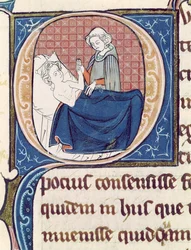 pocius consensisse s
quidem in hus que
muenisse quidem